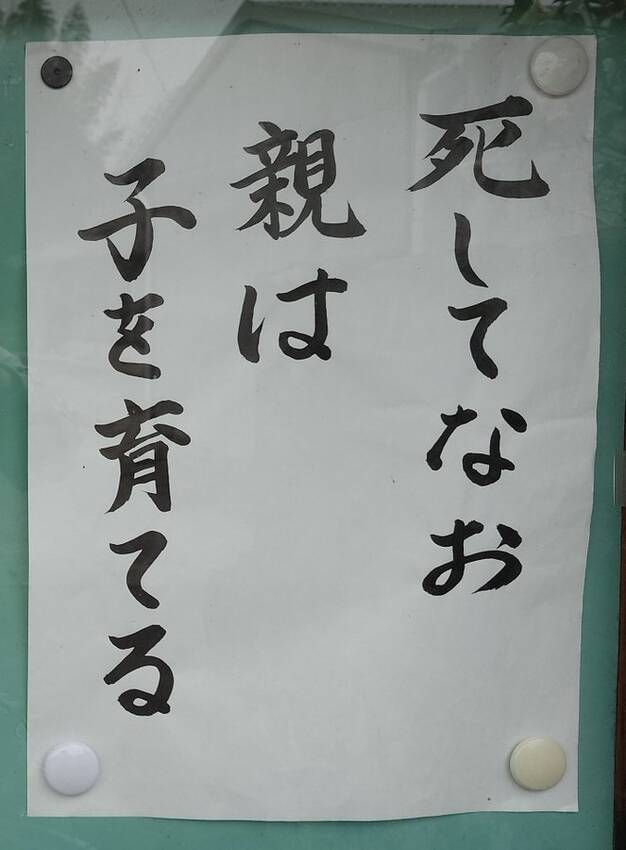 死してなお
親は
子を育てる